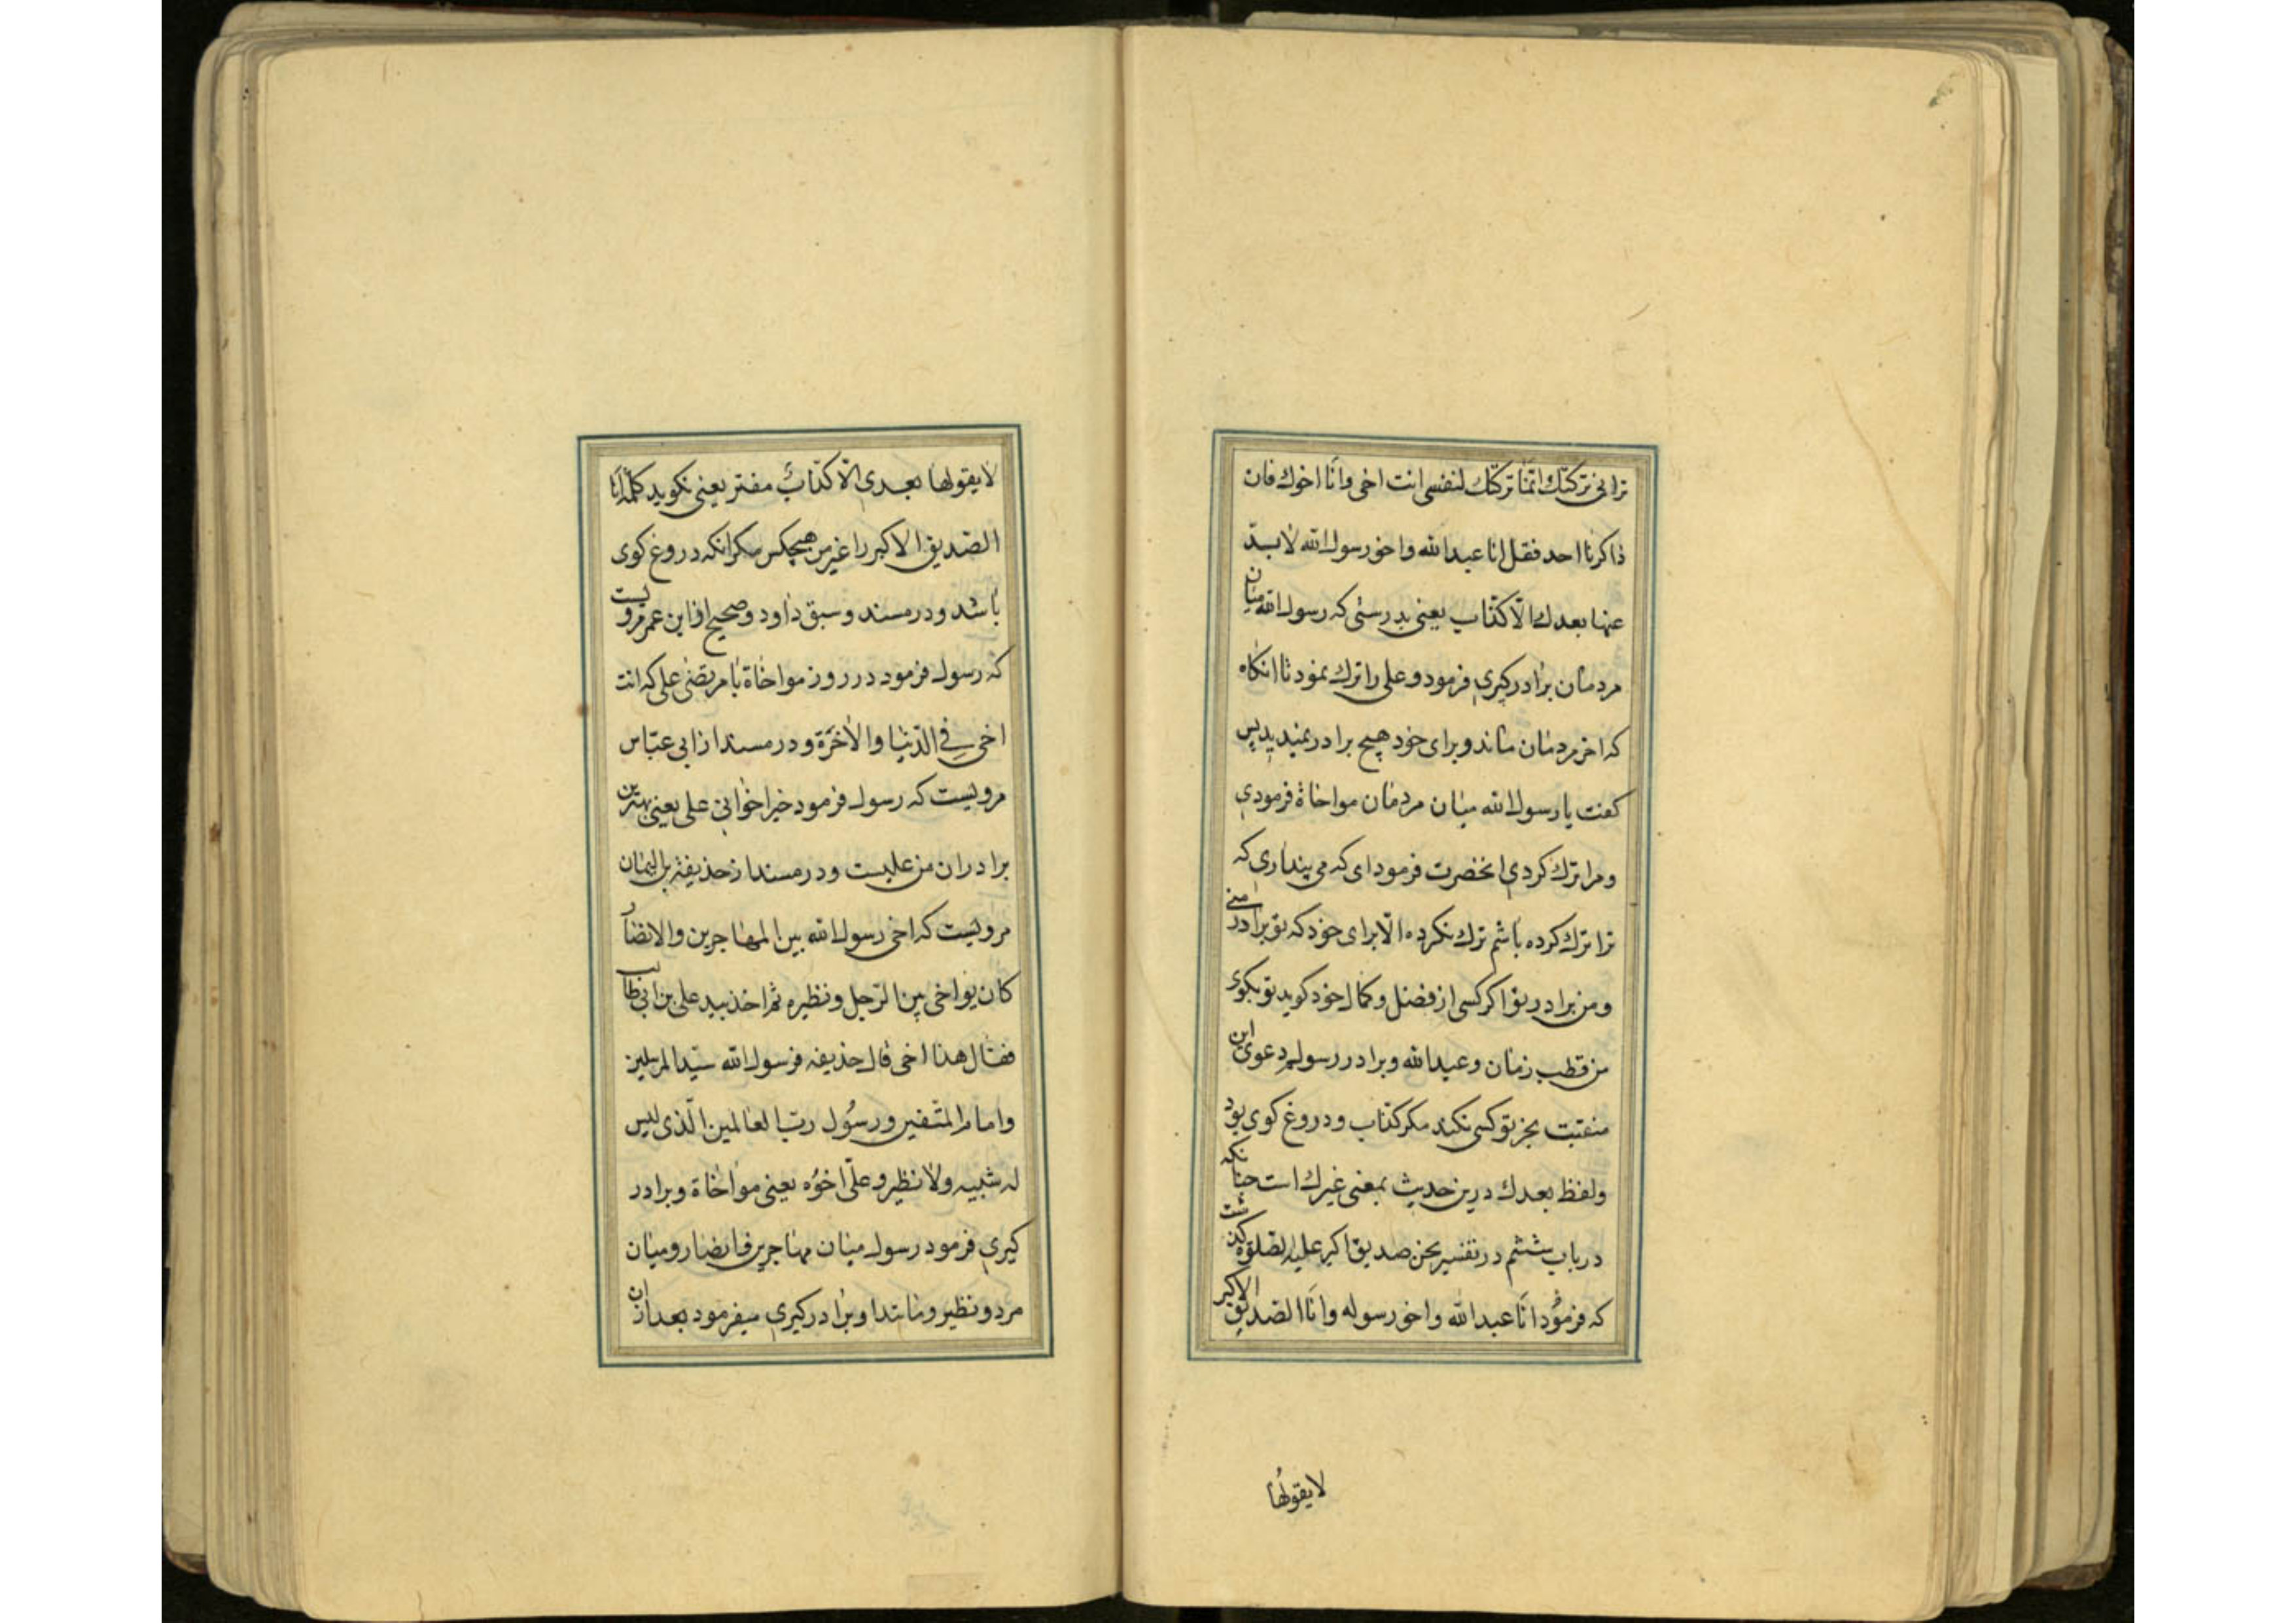 ترانی ترکتک وانمّا ترکتک لنفسی انت اخی وانَا اخوك فان
ذاکرنا احد فقل انا عبدالله واخو رسول الله لا یدّعیها
بعدك الّا کذّاب یعنی بدرستی که رسول الله میان
مردمان برادرکیری فرمود و علی را ترك نمود تا انکاه
که اخر مردمان ماند و برای خود هیچ برادر ندید پس
کفت یا رسول الله میان مردمان مواخاة فرمودی
و مرا ترك کردی انحضرت فرمود ای که می پنداری که
ترا ترك کرده باشم ترك نکرده الّا برای خود که تو برادر منی
و من برادر تو اکر کسی از فضل و کمال خود کوید تو بکوی
من قطب زمان و عبدالله و برادر رسولم دعوی این
منقبت بجز تو کسی نکند مکر کذّاب و دروغ کوی بود
ولفظ بعدك درین حدیث بمعنی غیرك است چنانکه
در باب ششم در تفسیر نحن صدیق اکبر علیه الصلوة کذشت
که فرمُود انَا عبدالله واخو رسوله وانَا الصّدیق الاکبر
لا یقولُها
لا یقولها بعدی الّا کذّابٌ مفتر یعنی نکوید کلمۀ انا
الصّدیق الاکبر را غیر من هیچکس مکر انکه دروغ کوی
باشد و در مسند و سبق داود و صحیح از ابن عمر مرویست
که رسول فرمود در روز مواخاة با مرتضی علی که انت
اخی فِی الدّنیا والاخَرة و در مسند از ابی عبّاس
مرویست که رسول فرمود خیر اخوانی علی یعنی بهترین
برادران من علیست و در مسند از حذیفة بن الیمان
مرویست که اخی رسول الله بین المهاجرین والانصار
کان یواخی بین الرّجل ونظیره ثم اخذ بید علی بن ابی طالب
فقال هذا اخی قال حذیفه فرسول الله سیّد المرسلین
وامام المتّقین ورسُول ربّ العالمین الّذی لیس
له شبیه ولا نظیر وعلّی اخوُه یعنی مواخاة و برادر
کیری فرمود رسول میان مهاجرین و انصار و میان
مرد و نظیر و مانند او برادرکیری میفرمود بعد از ان